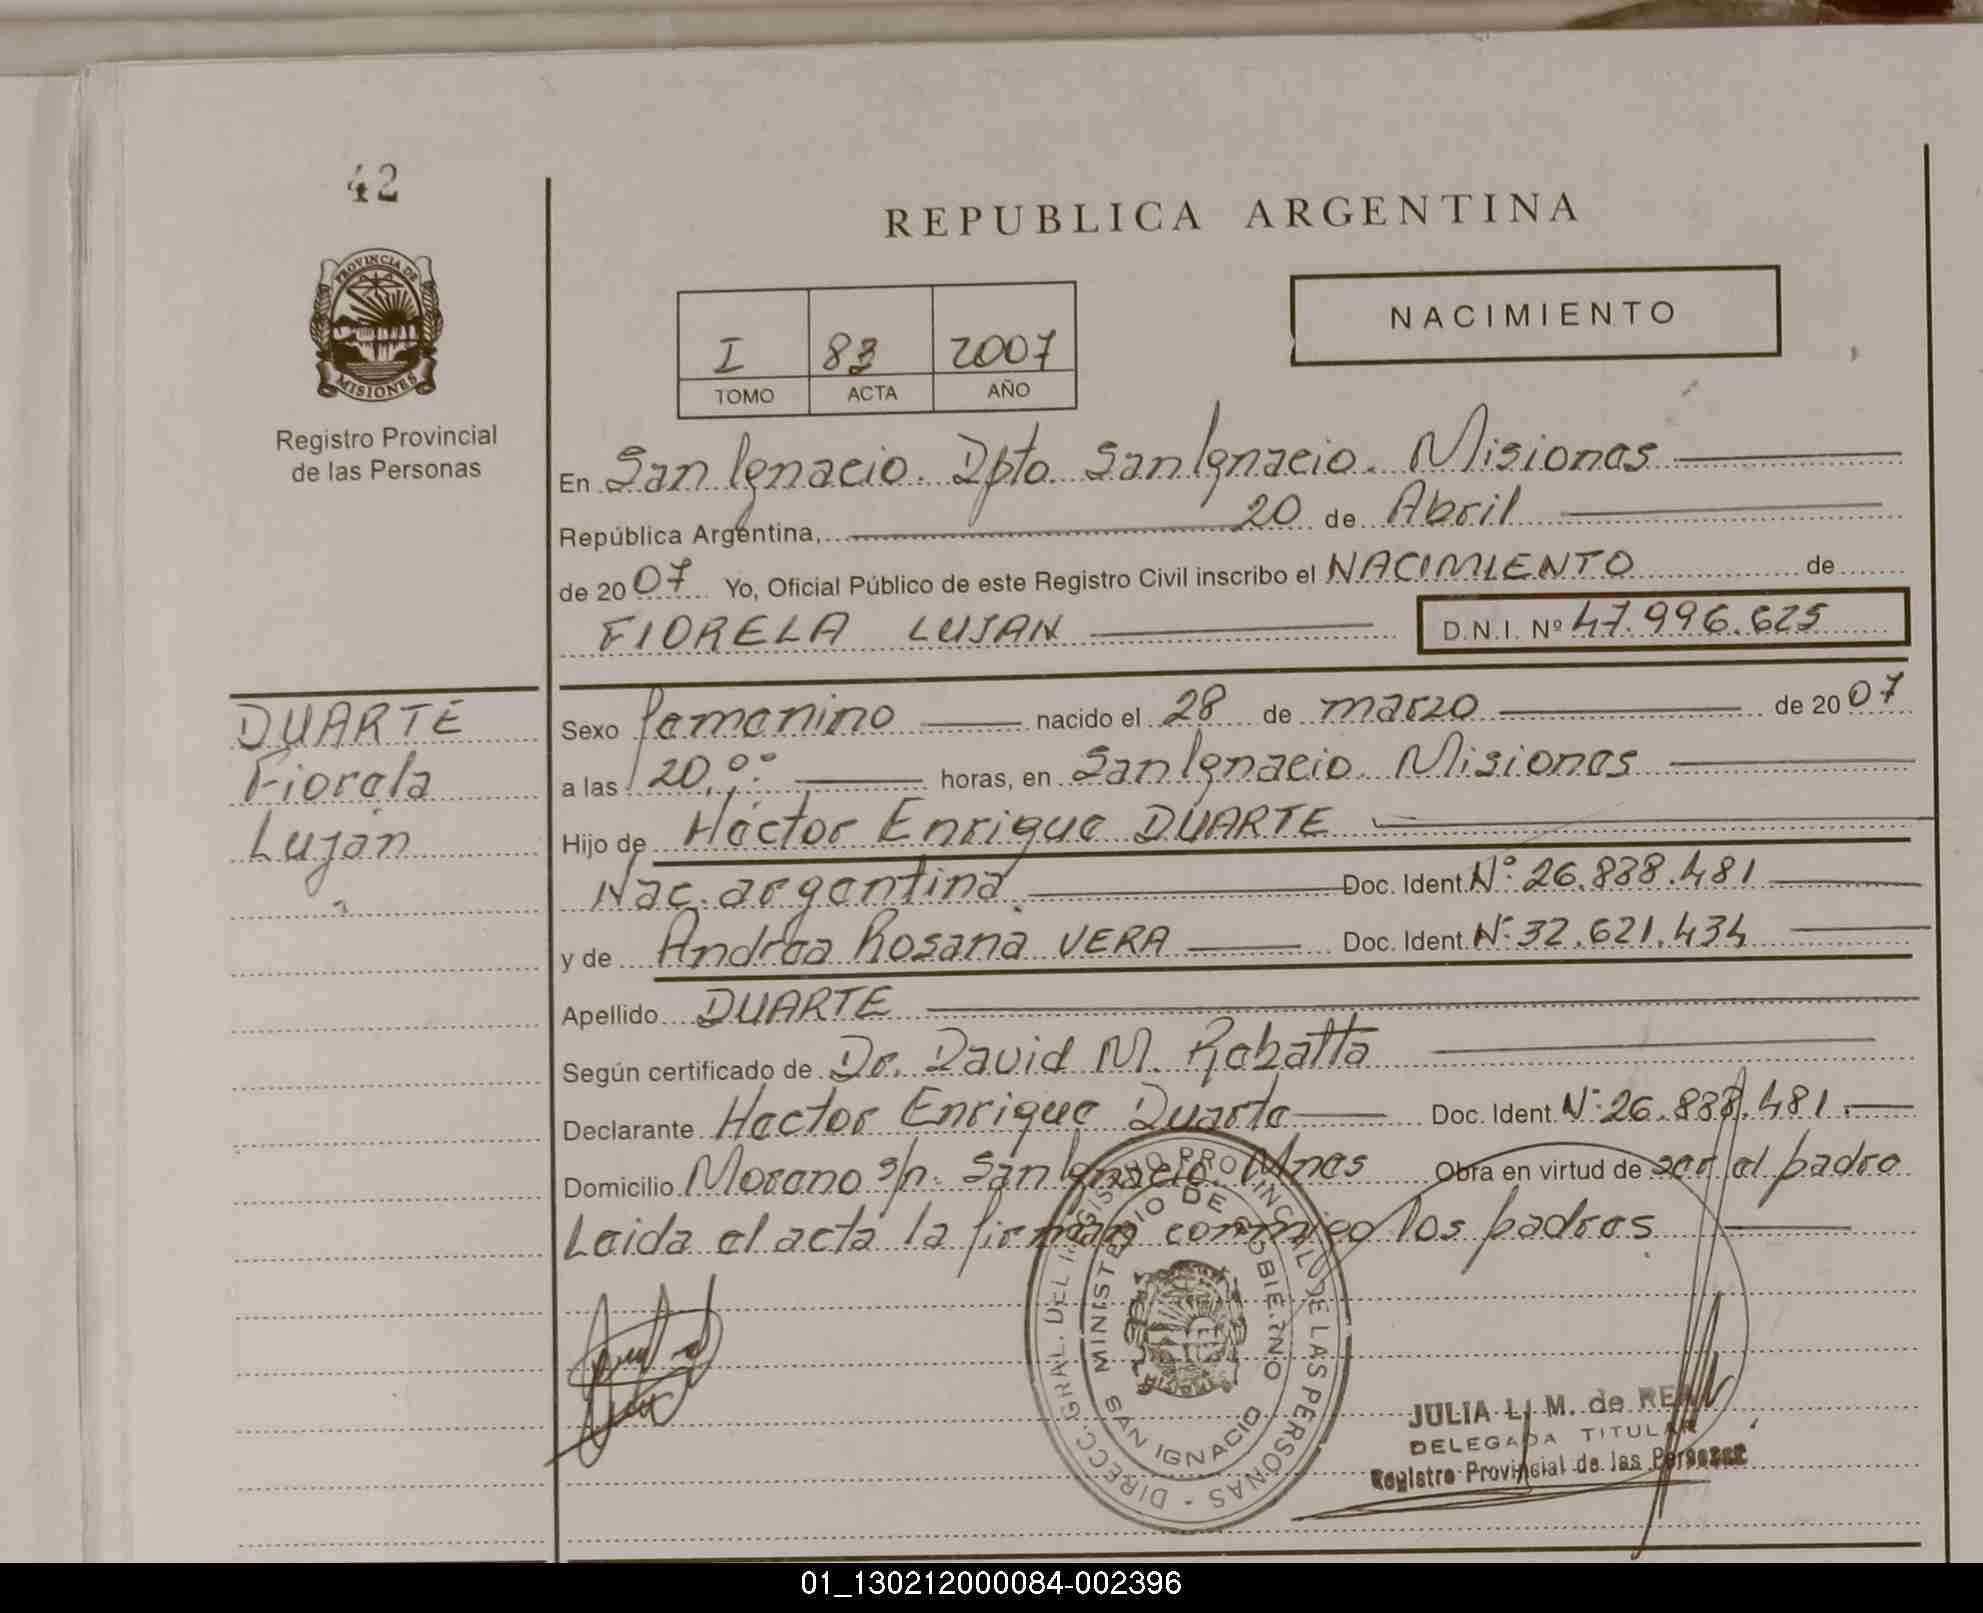 42
REPUBLICA ARGENTINA
PROVINCIA DE
MISIONES
NACIMIENTO
I 83 2007
TOMO ACTA AÑO
Registro Provincial
de las Personas
En San Ignacio. Dpto. San Ignacio. Misiones
República Argentina, 20 de Abril
de 2007 Yo, Oficial Público de este Registro Civil inscribo el NACIMIENTO de
FIORELA LUJAN D.N.I. Nº 47.996.625
DUARTE
Fiorela
Luján
Sexo femenino nacido el 28 de marzo de 2007
a las 20,00 horas, en San Ignacio. Misiones
Hijo de Héctor Enrique DUARTE
Nac. argentina. Doc. Ident. Nº 26.838.481
y de Andrea Rosana VERA Doc. Ident. Nº 32.621.434
Apellido DUARTE
Según certificado de Dr. David M. Rebatta
Declarante Hector Enrique Duarte Doc. Ident. Nº 26.838.481.
Domicilio Moreno s/n. San Ignacio. Mnes Obra en virtud de ser el padre
Leida el acta la firman conmigo los padres.
DIRECC. GRAL. DEL REGISTRO PROVINCIAL DE LAS PERSONAS -
MINISTERIO DE GOBIERNO
SAN IGNACIO
JULIA L. M. de
DELEGADA TITULAR
Registro Provincial de las Personas
01_130212000084-002396